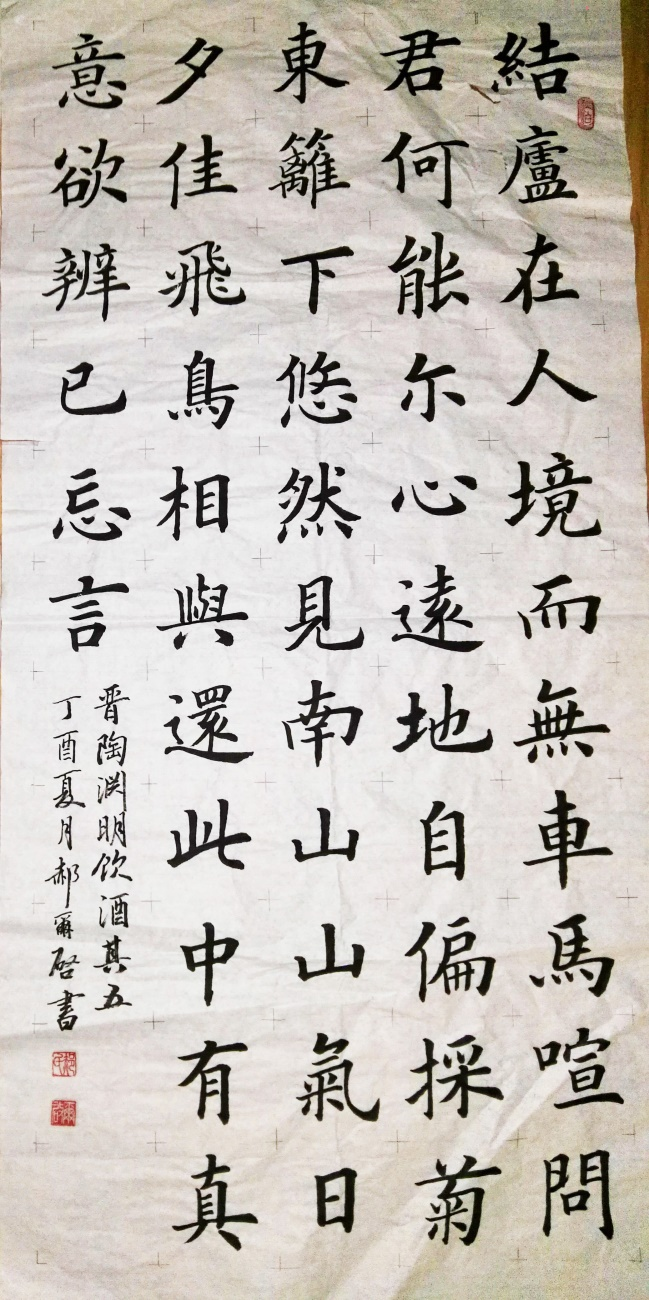 結廬在人境而無車馬喧問
君何能尔心遠地自偏採菊
東籬下悠然見南山山氣日
夕佳飛鳥相與還此中有真
意欲辨已忘言
晋陶渊明饮酒其五
丁酉夏月郝爾啓書